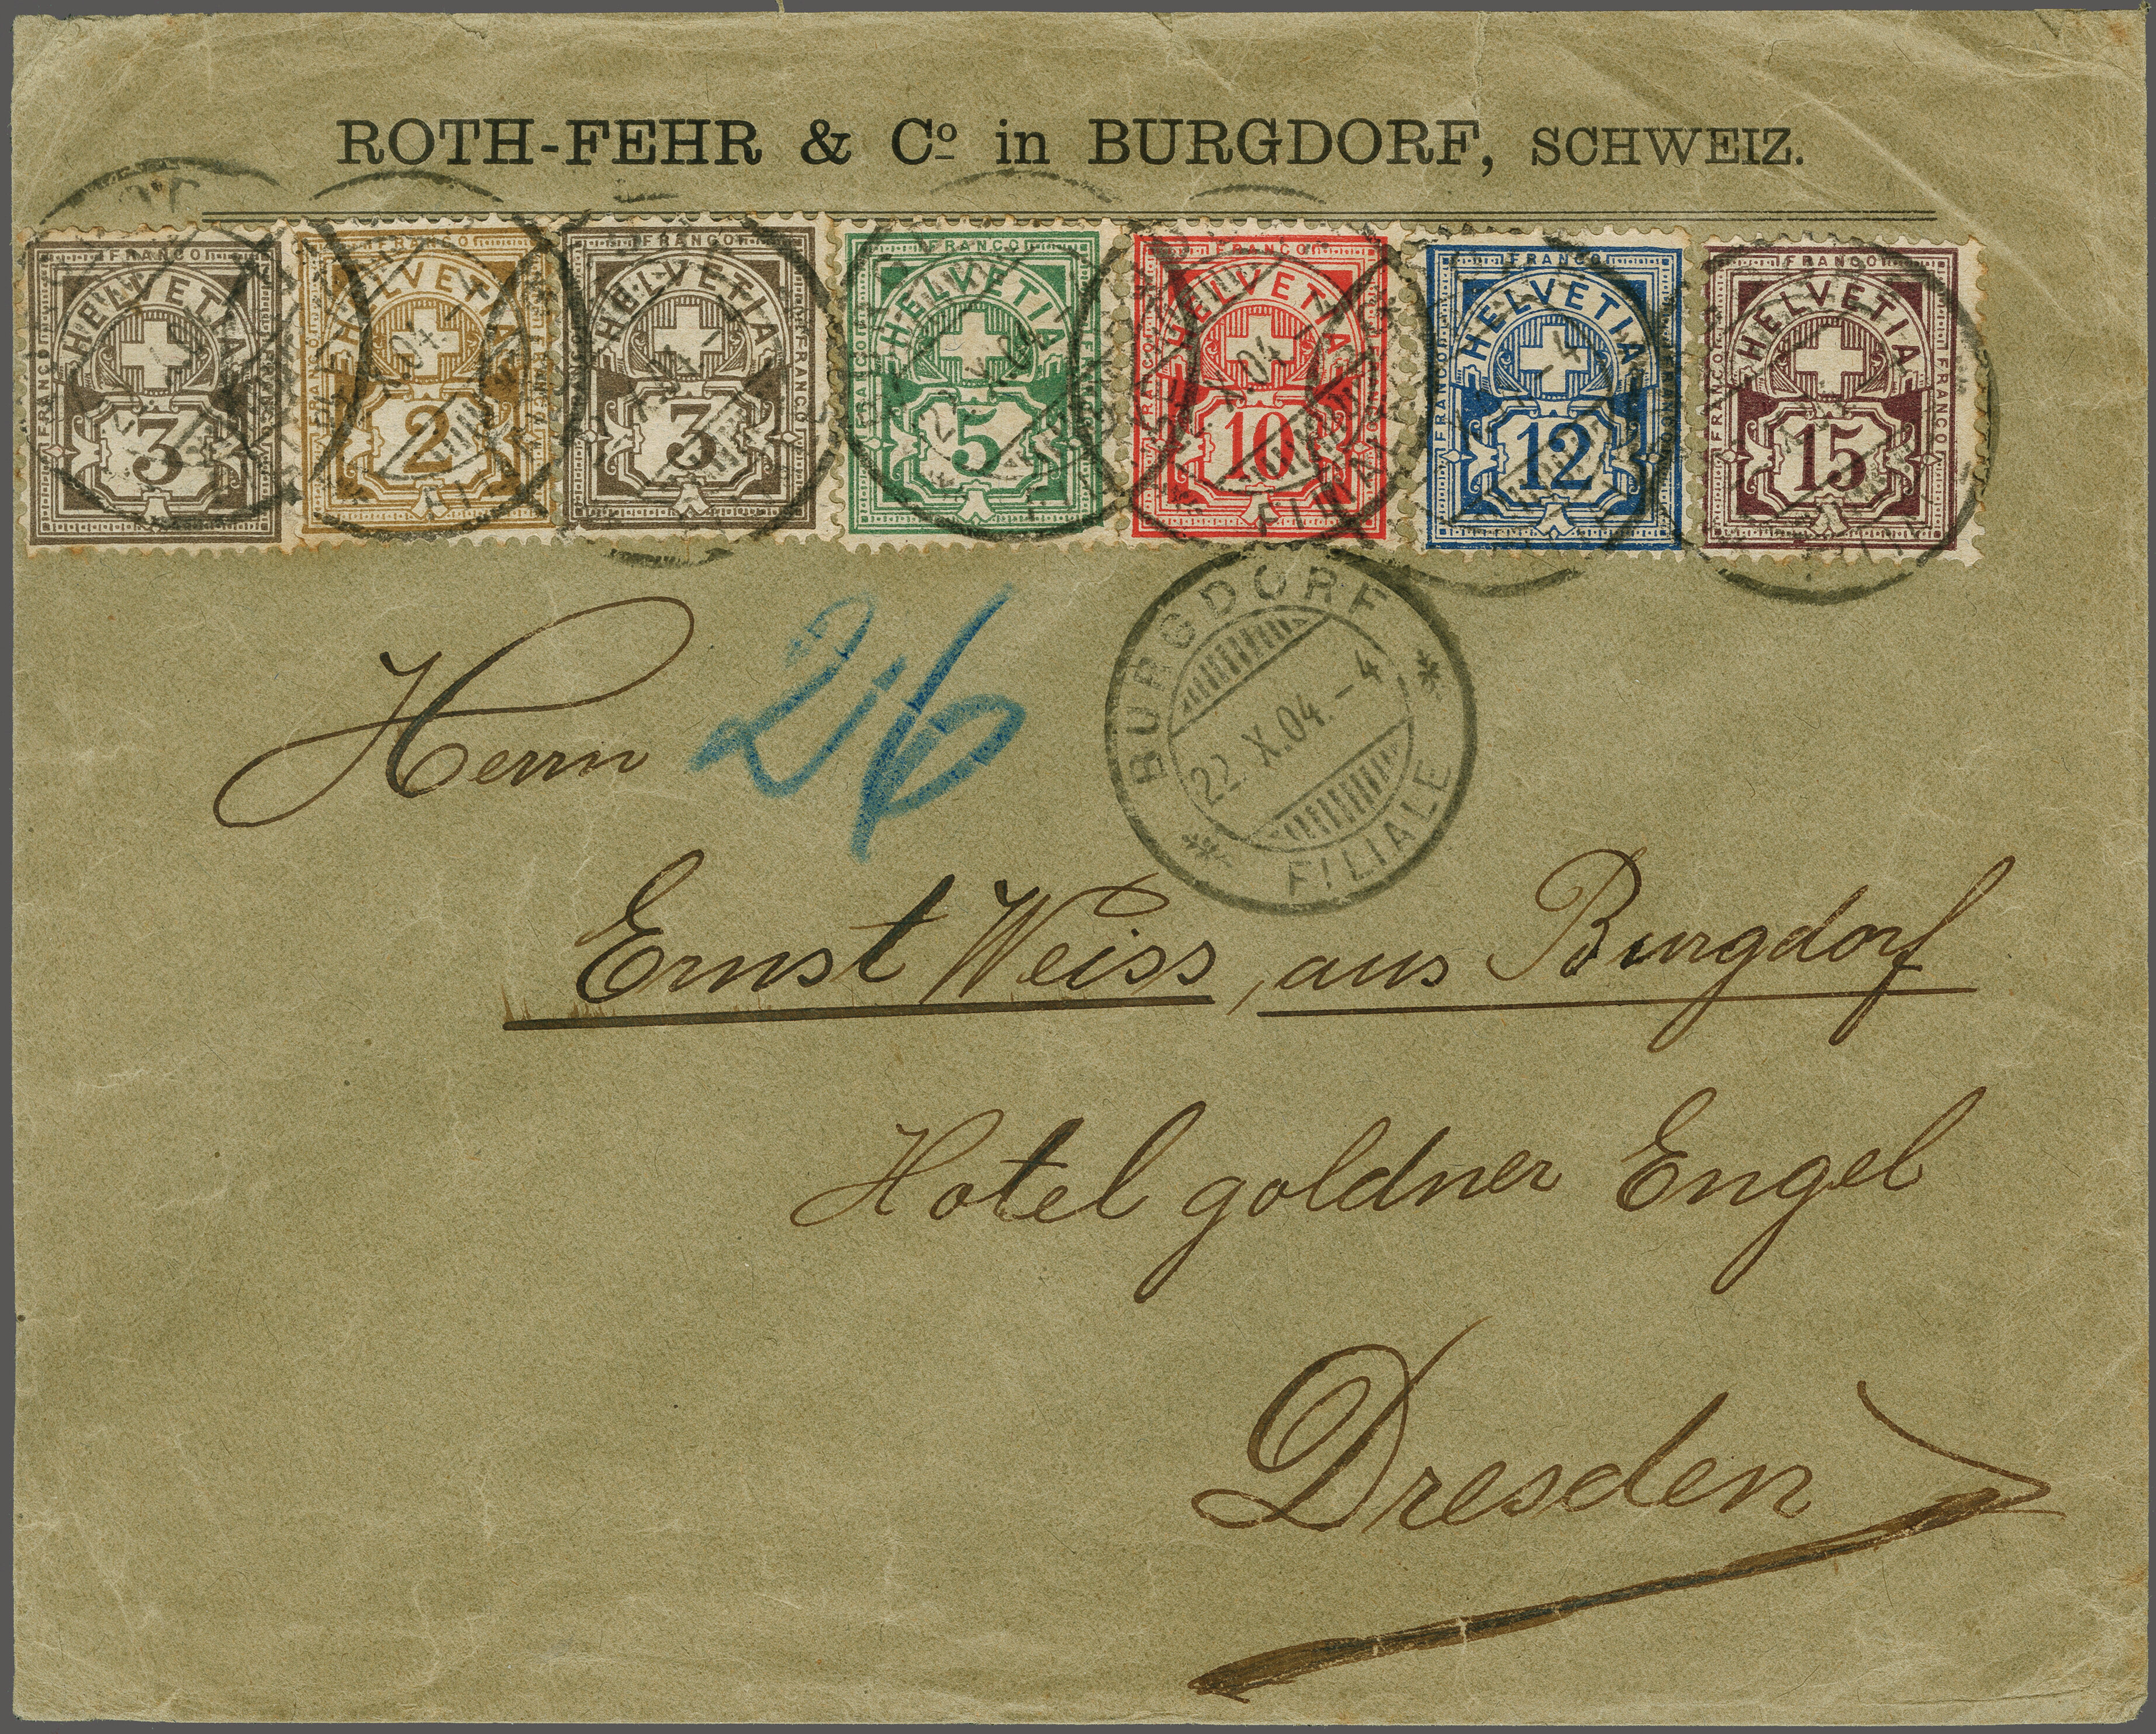 ROTH-FEHR & Cº in BURGDORF, SCHWEIZ.
FRANCO HELVETIA FRANCO FRANCO 3
FRANCO HELVETIA FRANCO FRANCO 2
FRANCO HELVETIA FRANCO 3
FRANCO HELVETIA FRANCO 5
FRANCO HELVETIA FRANCO 10
FRANCO HELVETIA FRANCO 12
FRANCO HELVETIA FRANCO FRANCO 15
BURGDORF
22. X.04.-4
FILIALE
26
Herrn
Ernst Weiss, aus Burgdorf
Hotel goldner Engel
Dresden